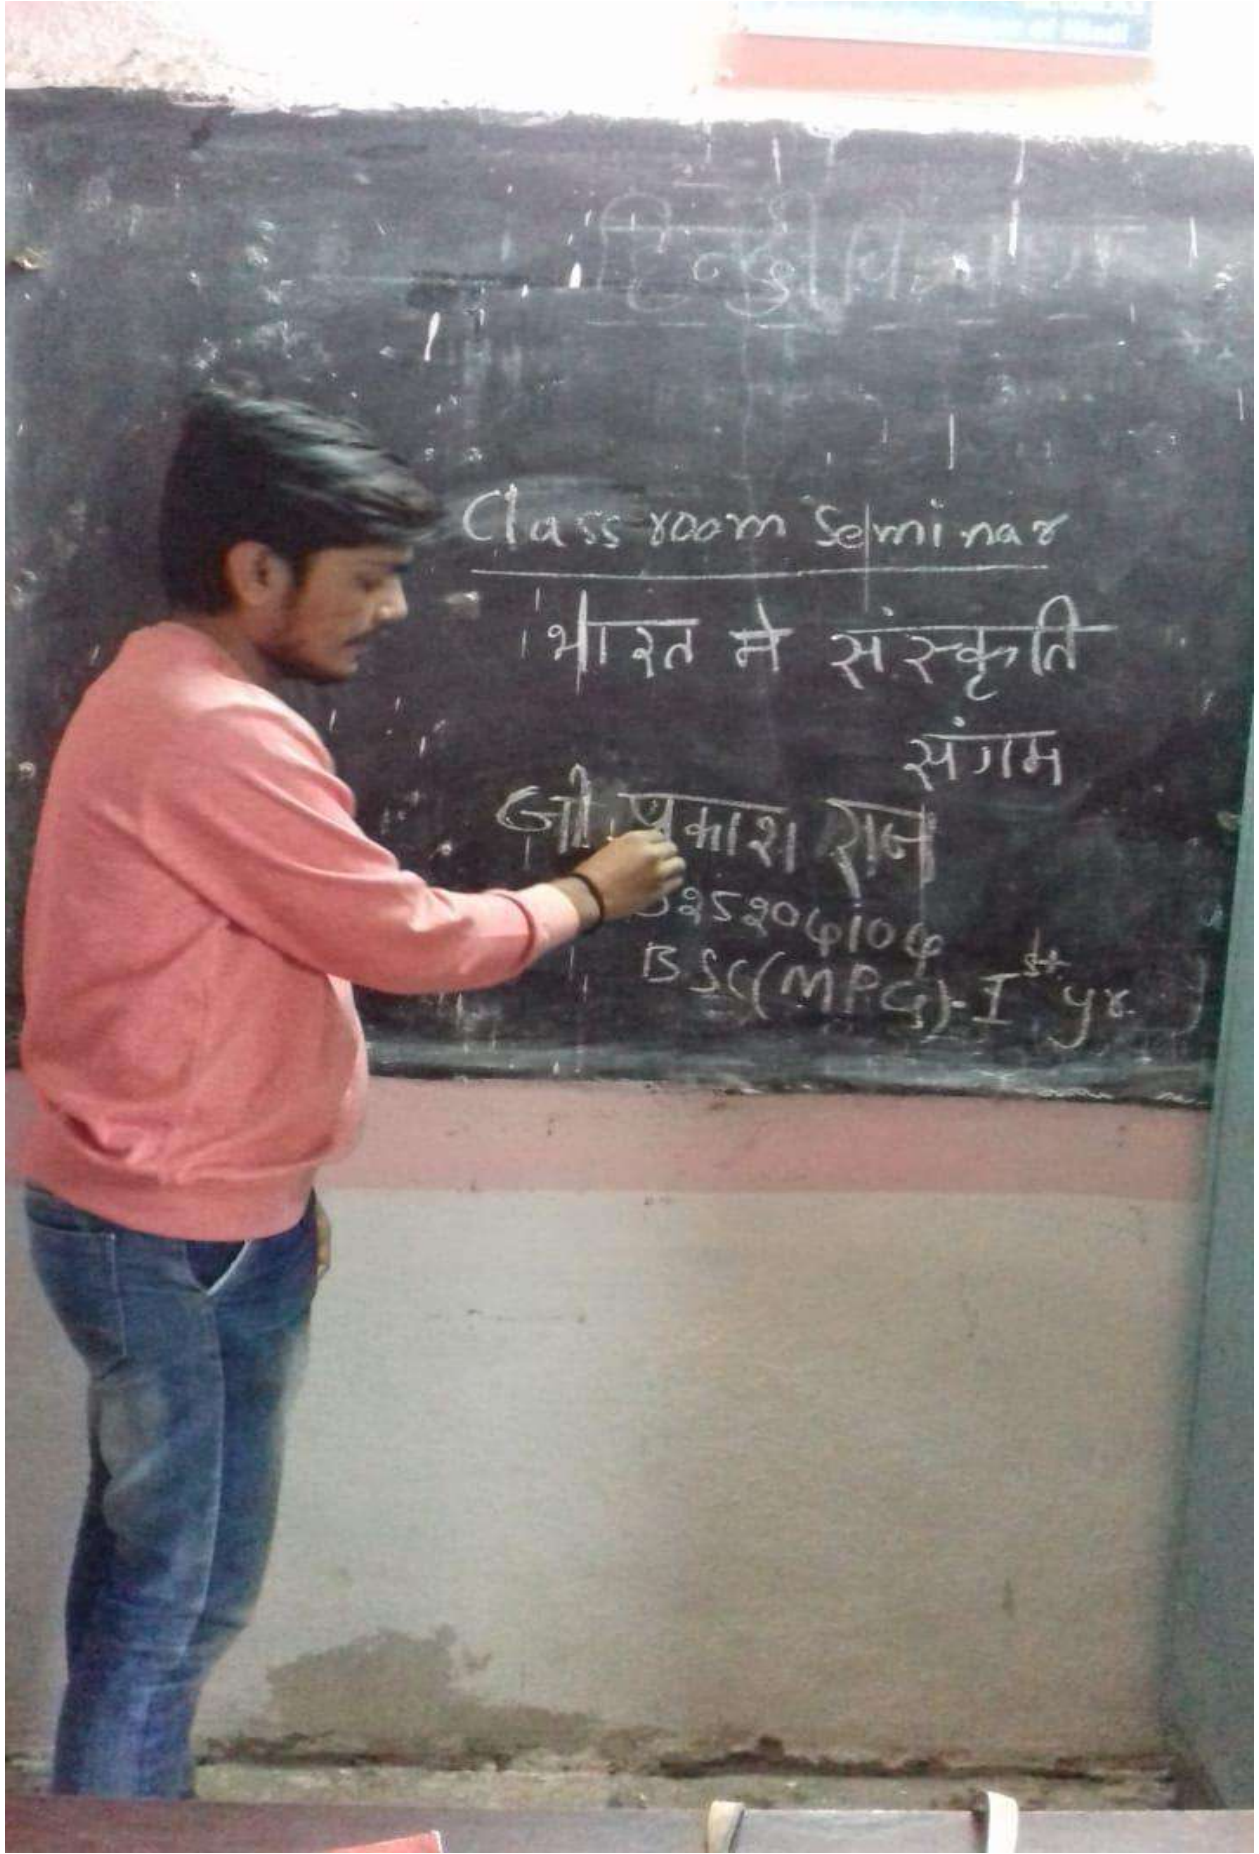 हिन्दी विभाग
Class room Seminar
भारत मे संस्कृति
संगम
जी. प्रकाश राज
BSC(MPCs)-Ist yr.